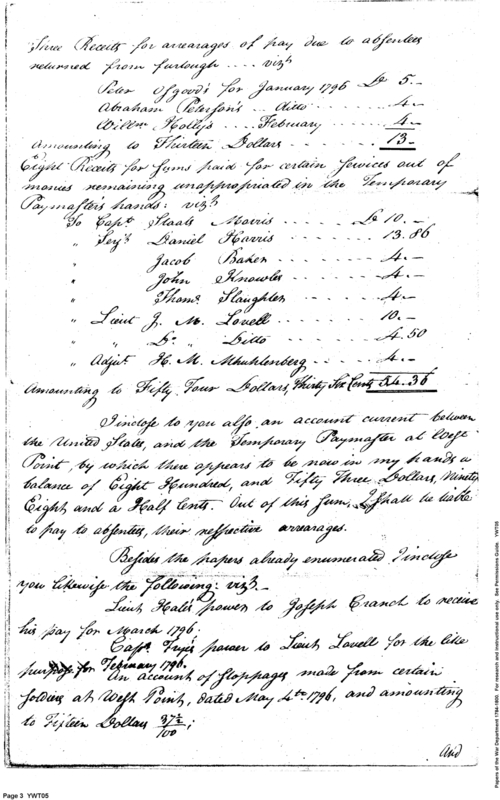 Three Receits for arrearages of pay due to absentees
returned from furlough .... vizt
Peter Osgood's for January 1796 Ds 5.-
Abraham Peterson's ... ditto .... 4.-
Willm Holly's ... February .... 4.-
Amounting to Thirteen Dollars .... 13.-
Eight Receits for sums paid for certain services out of
monies remaining unappropriated in the Temporary
Paymaster's hands: vizt
To Capt. Staats Morris ..... Ds 10.-
" Serjt. Daniel Harris ..... 13.86
" Jacob Baker ..... 4.-
" John Knowles ..... 4.-
" Thoms. Slaughter ..... 4.-
" Lieut J. M. Lovell ..... 10.-
" " Do. " Ditto ..... 4.50
" Adjut. H. M. Mhuhlenberg .... 4.-
Amounting to Fifty Four Dollars, Thirty Six Cents 54.36
I inclose to you also an account current between
the United States, and the Temporary Paymaster at West
Point, by which there appears to be now in my hands a
balance of Eight Hundred, and Fifty Three Dollars, Ninety
Eight and a Half Cents. Out of this sum, I shall be liable
to pay to absentees, their respective arrearages.
Besides the papers already enumerated I inclose
you likewise the following: vizt.-
Lieut Hale's power to Joseph Cranch to receive
his pay for March 1796;
Capt. Frye's power to Lieut Lovell for the like
purpose for February 1796.
An account of stoppages made from certain
soldiers at West Point, dated May 4th 1796, and amounting
to Fifteen Dollars 37½/100;
And
Page 3 YWT05
Papers of the War Department 1784-1800. For research and instructional use only. See Permissions Guide. YWT05